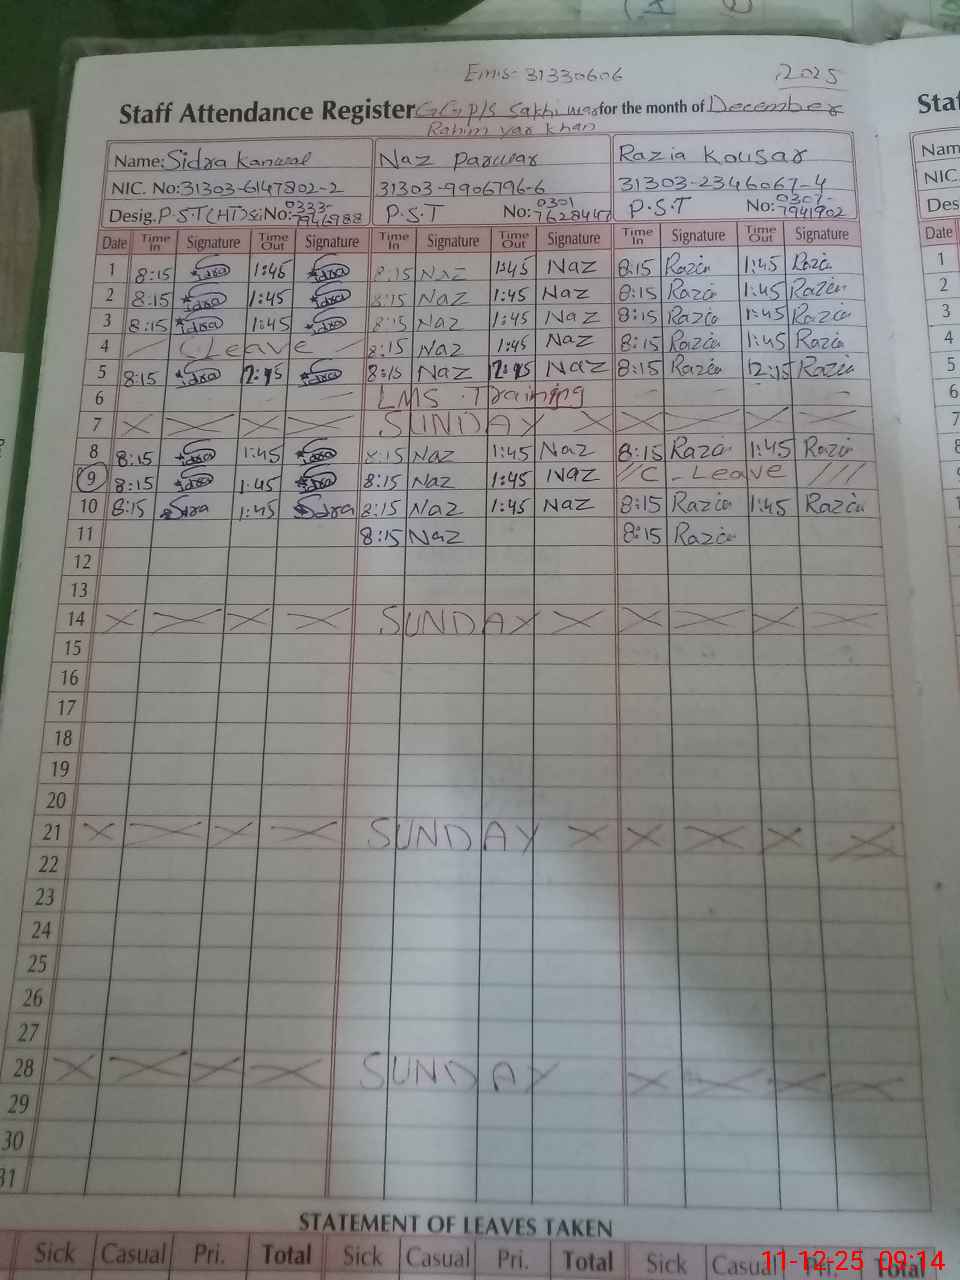 Emis- 31330606 2025
Staff Attendance Register GGP/S Sakhi war for the month of December
Rahim yar khan
Name: Sidra Kanwal Naz Parwar Razia Kousar
NIC. No: 31303-6147802-2 31303-9906796-6 31303-2346067-4
Desig. P.S.T (HT) No: 0333-7946988 P.S.T No: 0301 7628447 P.S.T No: 0307-7941902
Date Time In Signature Time Out Signature Time In Signature Time Out Signature Time In Signature Time Out Signature
1 8:15 Sidra 1:45 Sidra 8:15 Naz 1:45 Naz 8:15 Razia 1:45 Razia
2 8:15 Sidra 1:45 Sidra 8:15 Naz 1:45 Naz 8:15 Razia 1:45 Razia
3 8:15 Sidra 1:45 Sidra 8:15 Naz 1:45 Naz 8:15 Razia 1:45 Razia
4 C Leave 8:15 Naz 1:45 Naz 8:15 Razia 1:45 Razia
5 8:15 Sidra 12:15 Sidra 8:15 Naz 12:15 Naz 8:15 Razia 12:15 Razia
6 LMS Training
7 SUNDAY
8 8:15 Sidra 1:45 Sidra 8:15 Naz 1:45 Naz 8:15 Razia 1:45 Razia
9 8:15 Sidra 1:45 Sidra 8:15 Naz 1:45 Naz C - Leave
10 8:15 Sidra 1:45 Sidra 8:15 Naz 1:45 Naz 8:15 Razia 1:45 Razia
11 8:15 Naz 8:15 Razia
12
13
14 SUNDAY
15
16
17
18
19
20
21 SUNDAY
22
23
24
25
26
27
28 SUNDAY
29
30
31
STATEMENT OF LEAVES TAKEN
Sick Casual Pri. Total Sick Casual Pri. Total Sick Casual Pri. Total
11-12-25 09:14
Staf
Nam
NIC.
Des
Date
1
2
3
4
5
6
7
8